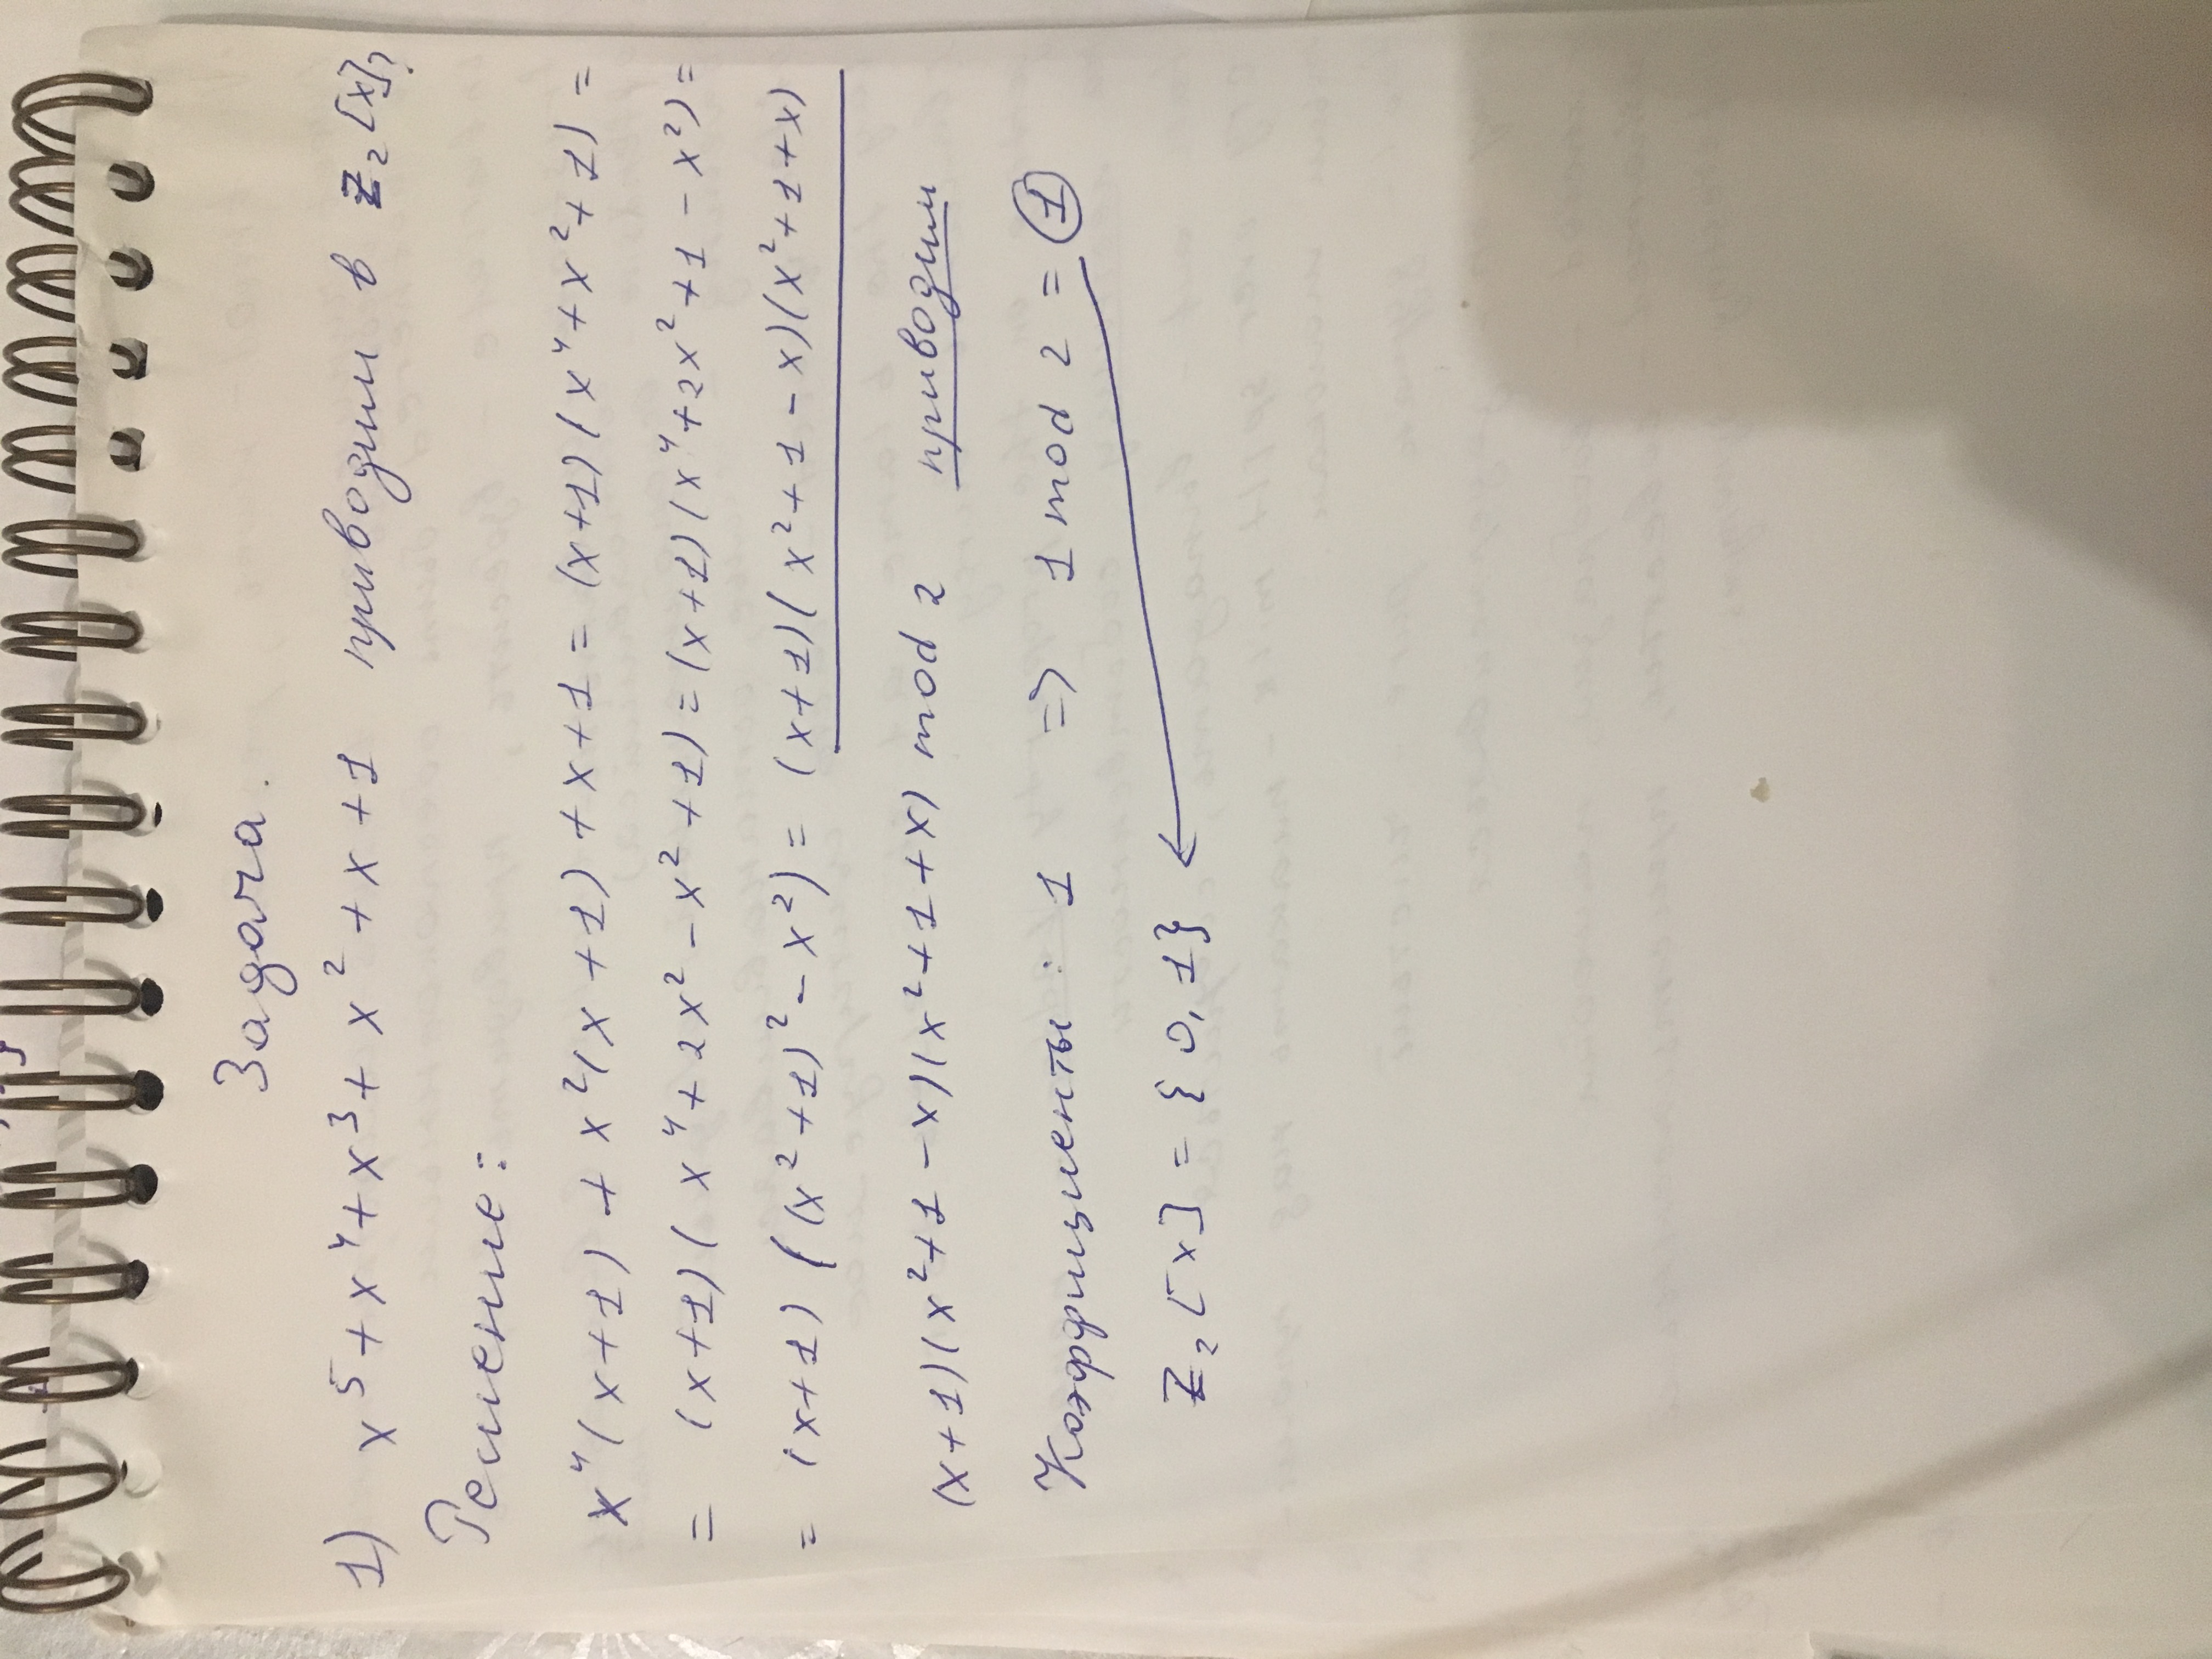 Задача.
1) x⁵ + x⁴ + x³ + x² + x + 1 приводим в Z₂[x]?
Решение:
x⁴(x+1) + x²(x+1) + x+1 = (x+1)(x⁴+x²+1) =
= (x+1)(x⁴+2x²-x²+1) = (x+1)(x⁴+2x²+1-x²) =
= (x+1)((x²+1)²-x²) = (x+1)(x²+1-x)(x²+1+x)
(x+1)(x²+1-x)(x²+1+x) mod 2 приводим
Коэффициенты: 1 => 1 mod 2 = 1
Z₂[x] = {0,1} ←